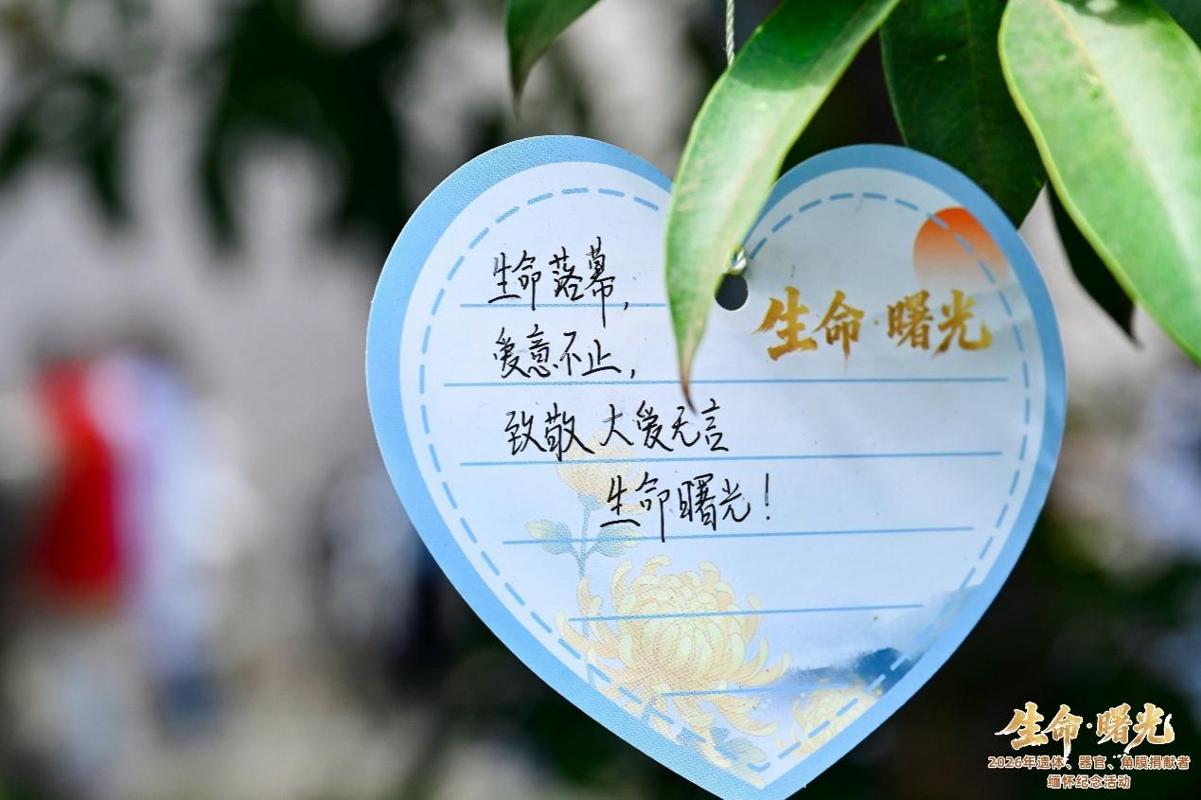 生命落幕,
爱意不止,
致敬 大爱无言
生命曙光!
生命·曙光
生命·曙光
2026年遗体、器官、角膜捐献者
缅怀纪念活动